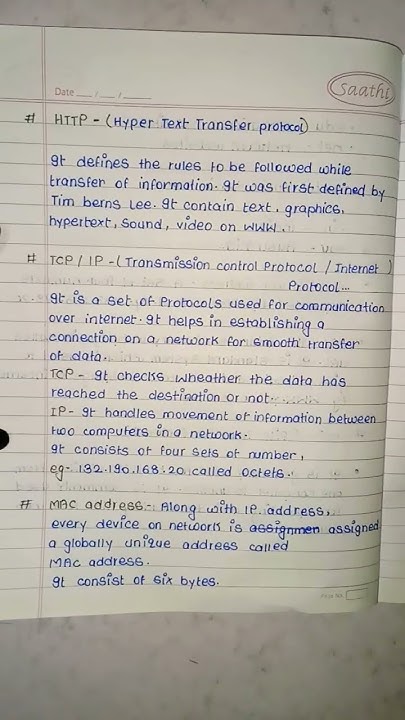 Saathi
Date ___/___/_____
# HTTP - (Hyper Text Transfer protocol)
It defines the rules to be followed while
transfer of information. It was first defined by
Tim berns Lee. It contain text, graphics,
hypertext, sound, video on WWW.
# TCP / IP - (Transmission control Protocol / Internet )
Protocol...
It is a set of Protocols used for communication
over internet. It helps in establishing a
connection on a network for smooth transfer
of data.
TCP - It checks wheather the data has
reached the destination or not.
IP - It handles movement of information between
two computers in a network.
It consists of four sets of number,
eg- 192.190.168.20 called octets.
# MAC address - Along with IP address,
every device on network is assignmen assigned
a globally unique address called
MAC address.
It consist of six bytes.
Page No.